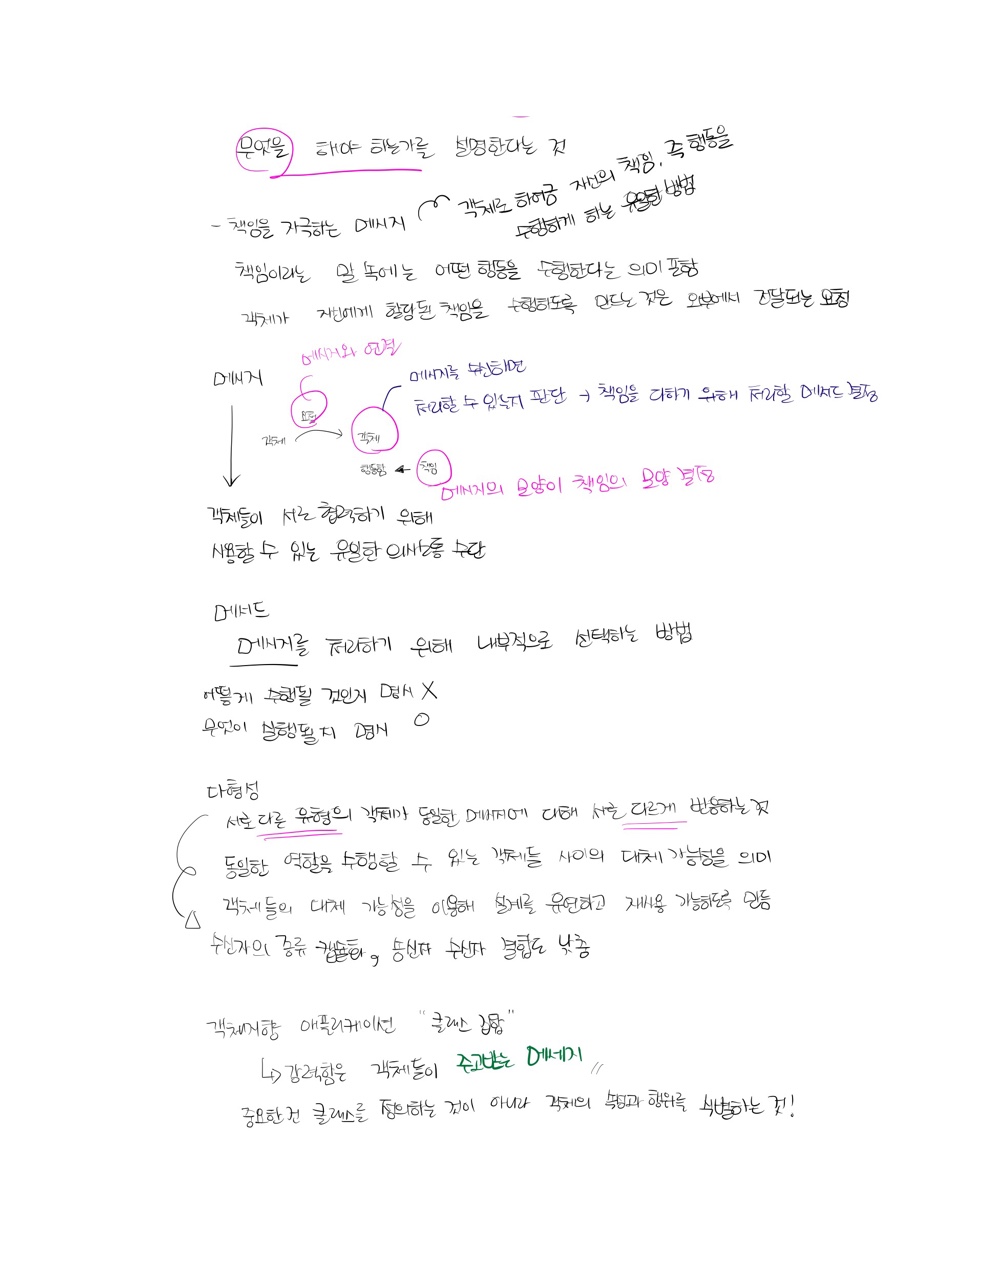 무엇을 해야 하는가를 설명한다는 것
- 책임을 자극하는 메시지
객체로 하여금 자신의 책임, 즉 행동을
수행하게 하는 유일한 방법
책임이라는 말 속에는 어떤 행동을 수행한다는 의미 포함
객체가 자신에게 할당된 책임을 수행하도록 만드는 것은 외부에서 전달되는 요청
메시지와 연결
메시지
메시지를 수신하면
처리할 수 있는지 판단 → 책임을 다하기 위해 처리할 메서드 결정
요청
객체
객체
행동함 ← 책임
메시지의 모양이 책임의 모양 결정
객체들이 서로 협력하기 위해
사용할 수 있는 유일한 의사소통 수단
메서드
메시지를 처리하기 위해 내부적으로 선택하는 방법
어떻게 수행될 것인지 명시 X
무엇이 실행될지 명시 O
다형성
서로 다른 유형의 객체가 동일한 메시지에 대해 서로 다르게 반응하는 것
동일한 역할을 수행할 수 있는 객체들 사이의 대체 가능성을 의미
객체들의 대체 가능성을 이용해 설계를 유연하고 재사용 가능하도록 만듦
수신자의 종류 캡슐화, 송신자 수신자 결합도 낮춤
객체지향 애플리케이션 "클래스 집합"
↳ 강력함은 객체들이 주고받는 메세지 "
중요한 건 클래스를 정의하는 것이 아니라 객체의 속성과 행위를 식별하는 것!